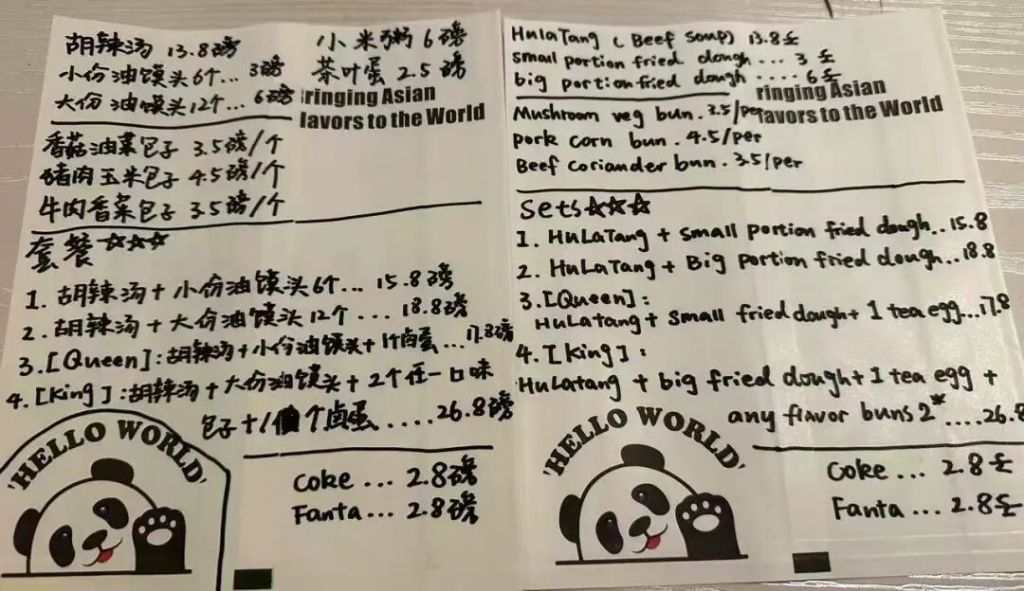 胡辣汤 13.8磅
小份油馍头6个... 3磅
大份油馍头12个... 6磅
小米粥 6磅
茶叶蛋 2.5磅
ringing Asian
lavors to the World
香菇油菜包子 3.5磅/个
猪肉玉米包子 4.5磅/个
牛肉香菜包子 3.5磅/个
套餐☆☆☆
1. 胡辣汤+小份油馍头6个... 15.8磅
2. 胡辣汤+大份油馍头12个... 18.8磅
3.[Queen]:胡辣汤+小份油馍头+1个卤蛋...17.8磅
4.[King]:胡辣汤+大份油馍头+2个任一口味
包子+1个卤蛋....26.8磅
'HELLO WORLD'
Coke ... 2.8磅
Fanta... 2.8磅
HuLaTang (Beef soup) 13.8£
small portion fried dough ... 3£
big portion fried dough .... 6£
ringing Asian
avors to the World
Mushroom veg bun. 3.5/per
pork corn bun. 4.5/per
Beef Coriander bun. 3.5/per
Sets☆☆☆
1. HuLaTang + small portion fried dough..15.8
2. HuLaTang + Big portion fried dough..18.8
3.[Queen]:
HuLatang+ small fried dough+ 1 tea egg...17.8
4.[King]:
HuLatang + big fried dough+1 tea egg +
any flavor buns 2*....26.8
'HELLO WORLD'
Coke ... 2.8£
Fanta ... 2.8£